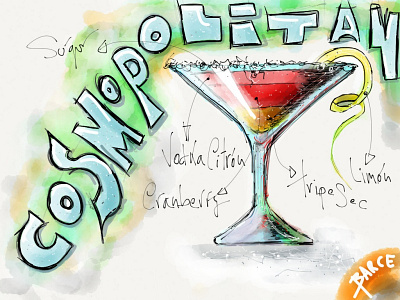 COSMOPOLITAN
Súgar
Vodka Citrón
Cranberry
tripe Sec
Limón
BARCE